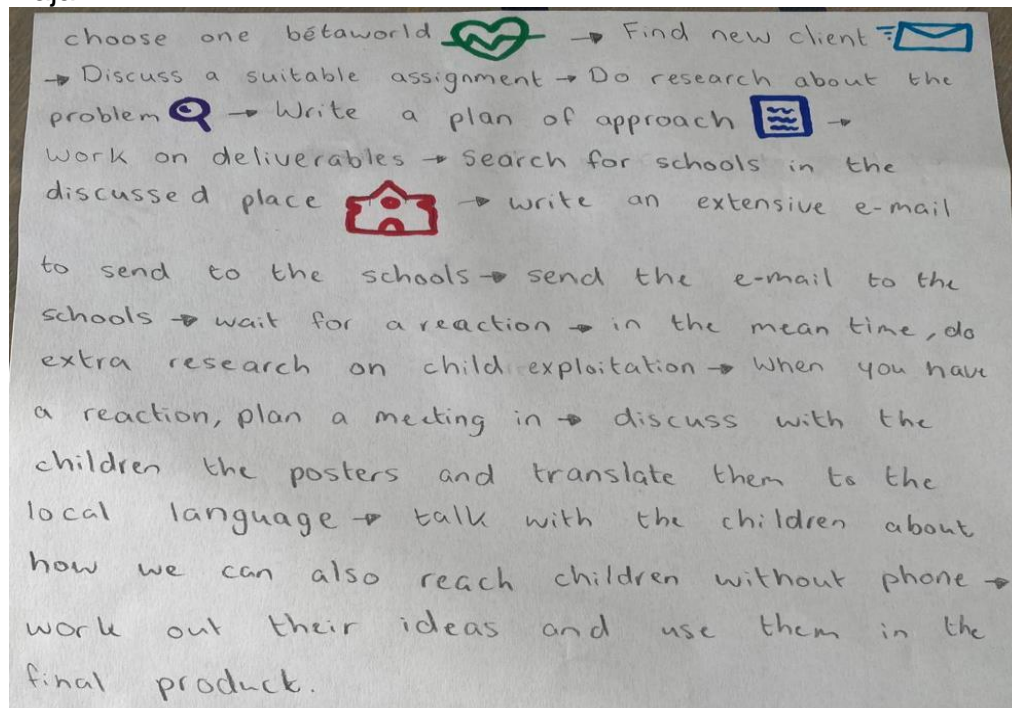 choose one bétaworld → Find new client
→ Discuss a suitable assignment → Do research about the
problem → Write a plan of approach →
work on deliverables → search for schools in the
discussed place → write an extensive e-mail
to send to the schools → send the e-mail to the
schools → wait for a reaction → in the mean time, do
extra research on child exploitation → When you have
a reaction, plan a meeting in → discuss with the
children the posters and translate them to the
local language → talk with the children about
how we can also reach children without phone →
work out their ideas and use them in the
final produck.